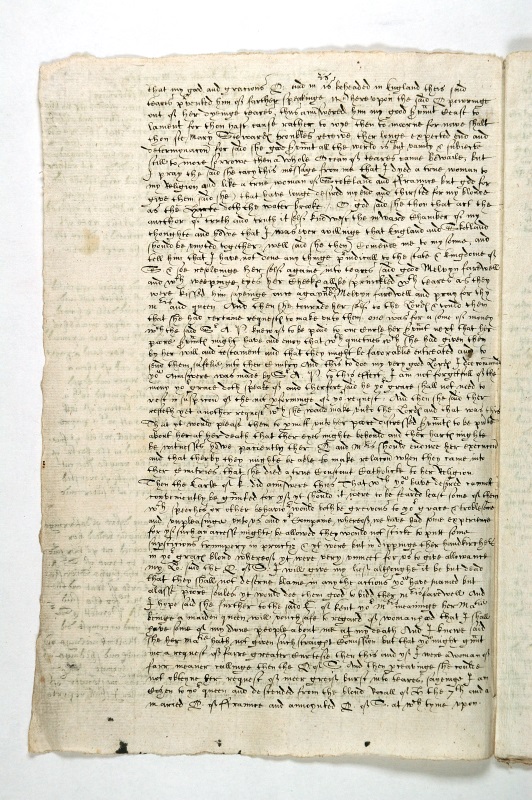 that my good and gratious Q. and m. is beheaded in England theis said
teares prvented him of further speakinge, wherevpon the said Q powringe
out of her dyenge teares, thus answered him my good srvaunt cease to
lament for thou hast cause rather to ioye then to mourne for nowe shalt
thou see Mary Stewardes troubles receive ther longe expected end and
determynacon for said she good srvaunt all the world is but vanity & subiecte
still to more sorrowe then a whole Ocean of teares came bewaile, but
I pray the said she cary this message from me that I dyed a true woman to
my religion and like a true woman of Scotteland and ffraunce but god for
give them said she that have longe desired my end and thirsted for my bloude
as the harte doth the water brooke. O god said she thou that art the
author of truth and truth it self knowest the inwarde chamber of my
thoughts and howe that I was ever willinge that England and Scotteland
should be vnyted together, well said she then Comend me to my sonne, and
tell him that I have not done any thinge priudicall to the state & kingdome of
S & soe resolvinge her selfe againe into teares said good Melvyn farewell
and wth weepinge eyes her cheekes all be sprinckled wth teares as they
were kissed him sayenge once againe Melvyn farewell and pray for thy
mrs and queen. And then she turned her self to the Lordes & tould them
that she had certaine requestes to make vnto them. one was for a some of money
wth she said Sr A. P. knew of to be paid to one Curle her srvaunt next that her
pore srvauntes might have and enioy that wth quietnes wth she had given them
by her will and testament and that they might be favorable entreated and to
send them safelie into ther cuntry And this to doe my very good Lordes I doe coniure
you Answere was made by Sr A. P. to this effect I am not forgetfull of the
mony yor grace doth speake of and therfore said he yor grace shall not need to
rest in suspicon of the not pforminge of yor request. And then she said ther
resteth yet another request wth she would make vnto the Lordes and that was this
That it would please them to pmitt vnto her poore distressed srvauntes to be present
about her at her death that ther eyes might behould and ther hartes might
be witnesses howe patiently ther Q. and mrs should endure her execucon
and that therby they might be able to make relacon when they came into
ther cuntries that she died a true Constant Catholicke to her religion
Then the Earle of k. did answere thus That wth you have desired cannot
conveniently be graunted for yf yt should it were to be feared least some of them
wth speeches or other behavior would both be grevous to yor grace & troblesome
and vnpleasinge vnto vs and or Companie, wherof we have had some experience
for yf such an accesse might be allowed they would not sticke to putt some
supersticious trumpery in practise & yf were but in dippinge their handkircheffes
in yor grace bloud wherof yt were very vnmeet for vs to give allowaunce
my Lord said the Q. of S. I will give my word althoughe it be but dead
that they shall not deserve blame, in any the actions you have named but
alasse poore soules yt would doe them good to bidd they mrs farewell And
I hope said she further to the said E. of kent yor Mrs meaninge her Matie
beinge a maiden queen, will vouchsafe in regard of womanhood that I shall
have some of my owne people about me at my death And I knowe said
she her Matie hath not given such straight Comission but that you might graunt
me a request of farre greater curtesie then this and yf I were a woman of
farr meaner callinge then the Q. of S. And then p'ceavinge she could
not obteyne her request of meer greife burst into teares, sayenge I am
Cosen to yor queen and descended from the bloud Royall of H the 7th and a
maried Q. of ffraunce and anoynted Q. of S. at wth tyme vpon